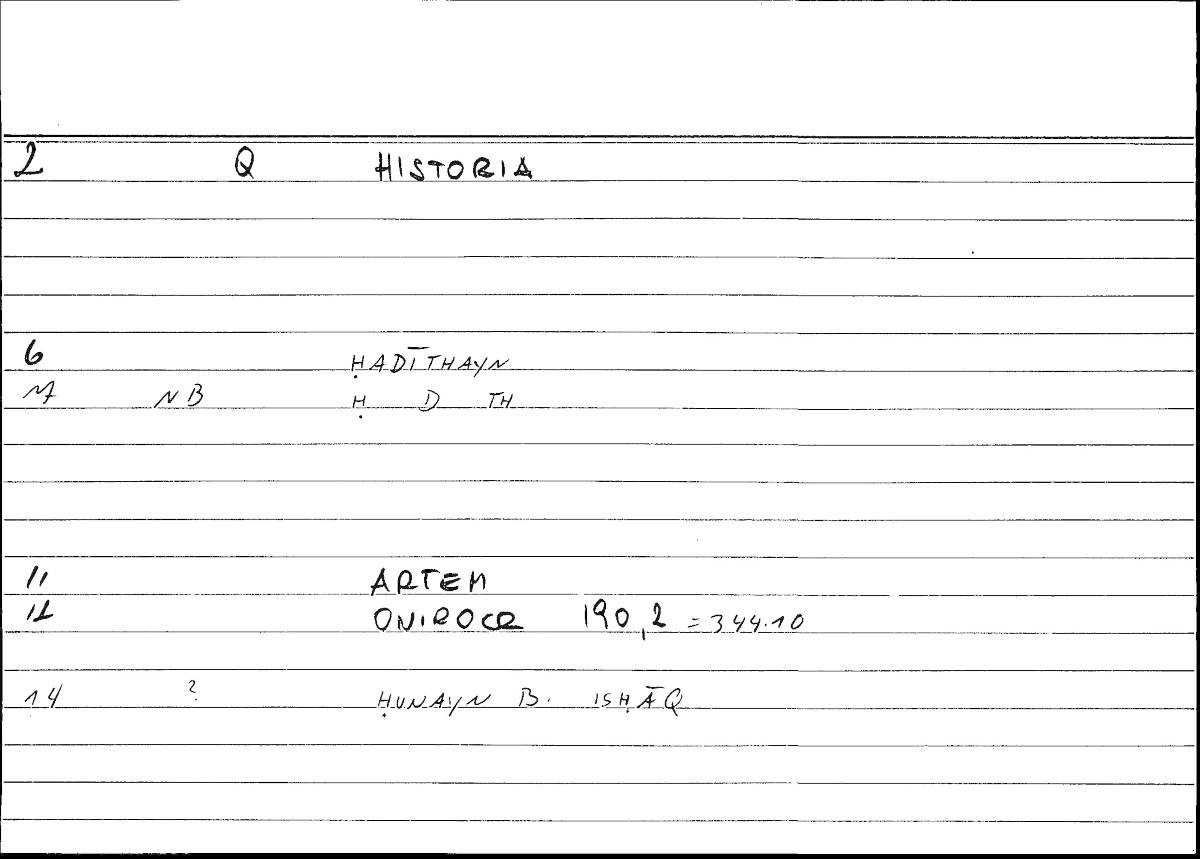 2 Q HISTORIA
6 ḤADĪTHAYN
7 NB Ḥ D TH
11 ARTEM
12 ONIROCR 190,2 = 344.10
14 ? ḤUNAYN B. ISḤĀQ